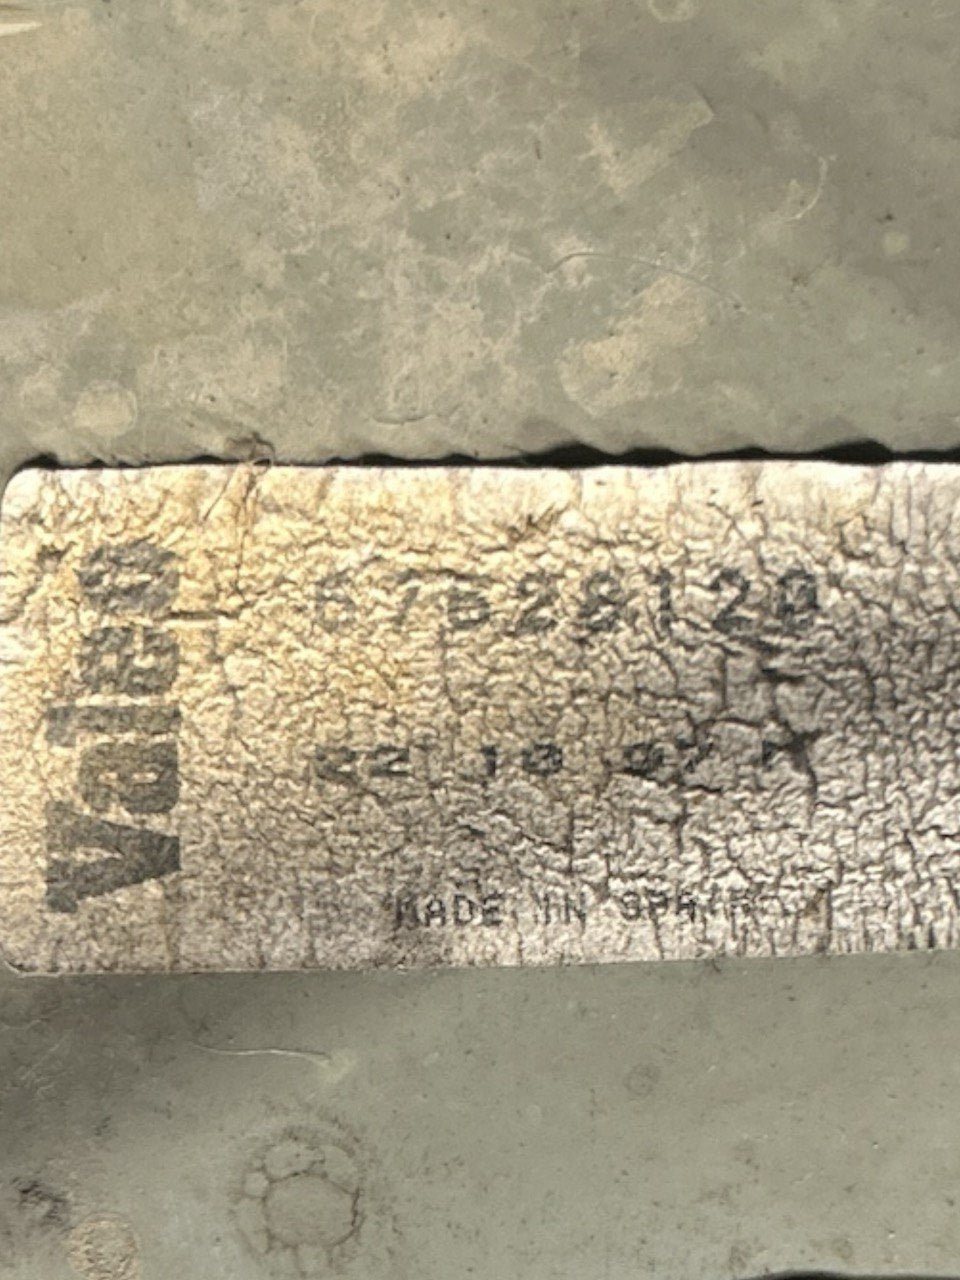 Valeo
67628120
22 10 97 A
MADE IN SPAIN